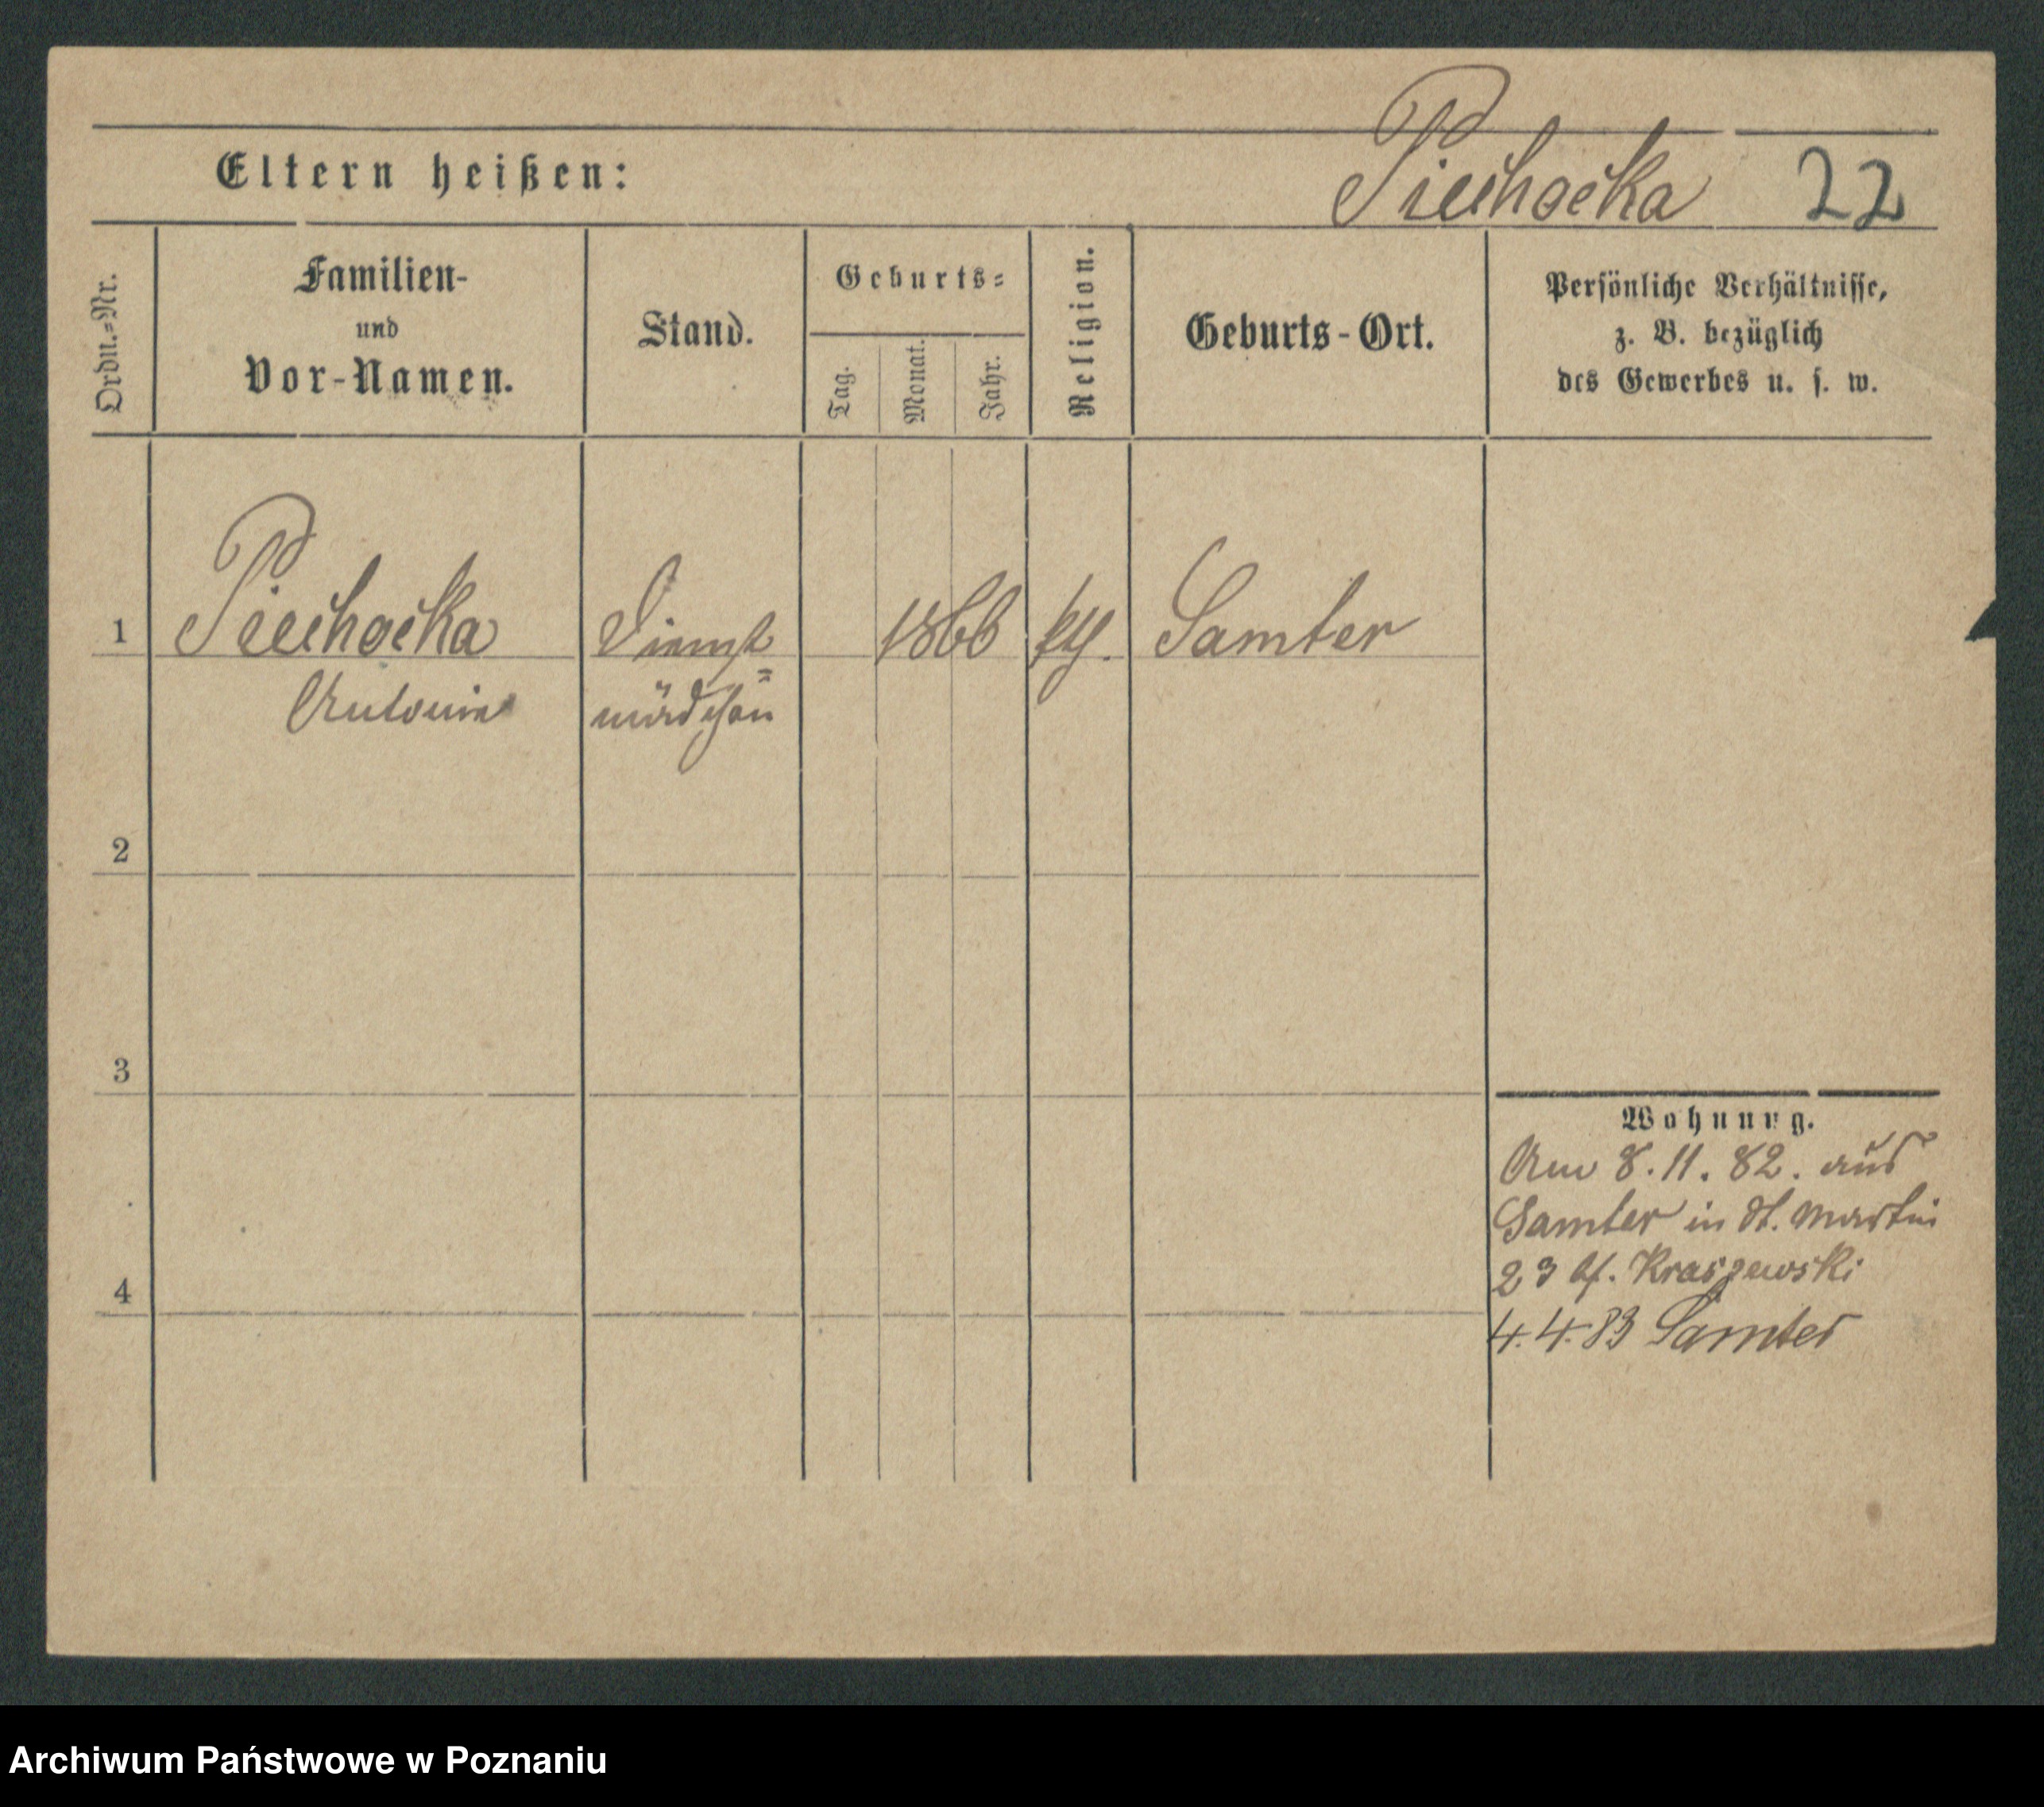 Piechocka 22
Eltern heißen:
Ordn.=Nr.
Familien-
und
Vor-Namen.
Stand.
Geburts=
Tag.
Monat.
Jahr.
Religion.
Geburts-Ort.
Persönliche Verhältnisse,
z. B. bezüglich
des Gewerbes u. s. w.
1 Piechocka Dienst 1866 kth. Samter
Antonie =mädchen
2
3
Wohnung.
Am 8. 11. 82. aus
Samter in St. Martin
23 bf. Kraszewski
4
4. 4. 83 Samter
Archiwum Państwowe w Poznaniu